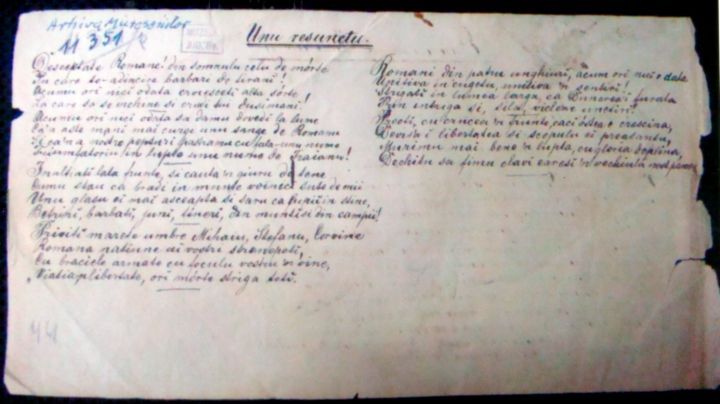 Arhiva Muresenilor
11 351
Unu resunetu.
Desceptate Romane! din somnulu celu de mórte
In care te-adincira barbari de tirani!
Acumu ori nici odata croiesceti alta sórte
La care sa se inchine si crudii tei dusimani!
Acumu ori nici odata sa damu dovedi la lume
Ca'n aste mani mai curge unu sange de Romanu
Si ca'n a nostre pepturi pastramu cu fala-unu nume
Triumfatoriu in lupte unu nume de Traianu!
Inaltiati lata frunte, si cauta'n giuru de tene
Cumu stau ca bradi in munte voinici sute de mii
Unu glasu ei mai ascepta si saru ca lupii in stine,
Betrini, barbati, juni, tineri, din munti si din campii!
Priviti marete umbre Mihaiu, Stefanu, Corvine
Romana natiune ai vostri stranepoti,
Cu braciele armate cu foculu vostru'n vine,
„Viatia'n libertate, ori mórte striga toti.
Romani din patru unghiuri, acum ori nici o data
Uniti-va in cugetu, uniti-va in sentiri!
Strigati in lumea larga, ca Dunarea-i furata
Prin intriga si, sila, viclene uneltiri
Preoti, cu crucea'n frunte, caci ostea e crestina,
Devisa-i libertatea si scopulu ei preasantu,
Murimu mai bine'n lupta, cu gloria deplina,
Decâtu sa fimu sclavi earesi'n vechiulu nost pamentu
441